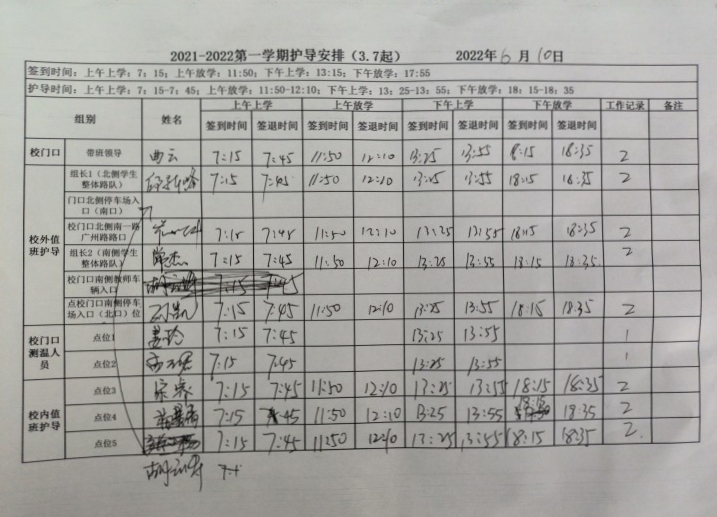 2021-2022第一学期护导安排（3.7起） 2022年6月10日
签到时间：上午上学：7：15；上午放学：11:50；下午上学：13:15；下午放学：17:55
护导时间：上午上学：7：15-7：45；上午放学：11:50-12:10；下午上学：13：25-13：55；下午放学：18：15-18：35
组别 姓名 上午上学 上午放学 下午上学 下午放学 工作记录 备注
签到时间 签退时间 签到时间 签退时间 签到时间 签退时间 签到时间 签退时间
校门口 带班领导 7:15 7:45 11:50 12:10 13:25 13:55 18:15 18:35 2
校外值班护导
组长1（北侧学生整体路队） 7:15 7:45 11:50 12:10 13:25 13:55 18:15 18:35 2
门口北侧停车场入口（南口）
校门口北侧南一路广州路路口 7:15 7:45 11:50 12:10 13:25 13:55 18:15 18:35 2
组长2（南侧学生整体路队） 7:15 7:45 11:50 12:10 13:25 13:55 18:15 18:35 2
校门口南侧教师车辆入口 7:15 7:45
点校门口南侧停车场入口（北口）位 7:15 7:45 11:50 12:10 13:25 13:55 18:15 18:35 2
校门口测温人员
点位1 7:15 7:45 13:25 13:55 1
点位2 7:15 7:45 13:25 13:55 1
校内值班护导
点位3 7:15 7:45 11:50 12:10 13:25 13:55 18:15 18:35 2
点位4 7:15 7:45 11:50 12:10 13:25 13:55 18:15 18:35 2
点位5 7:15 7:45 11:50 12:10 13:25 13:55 18:15 18:35 2